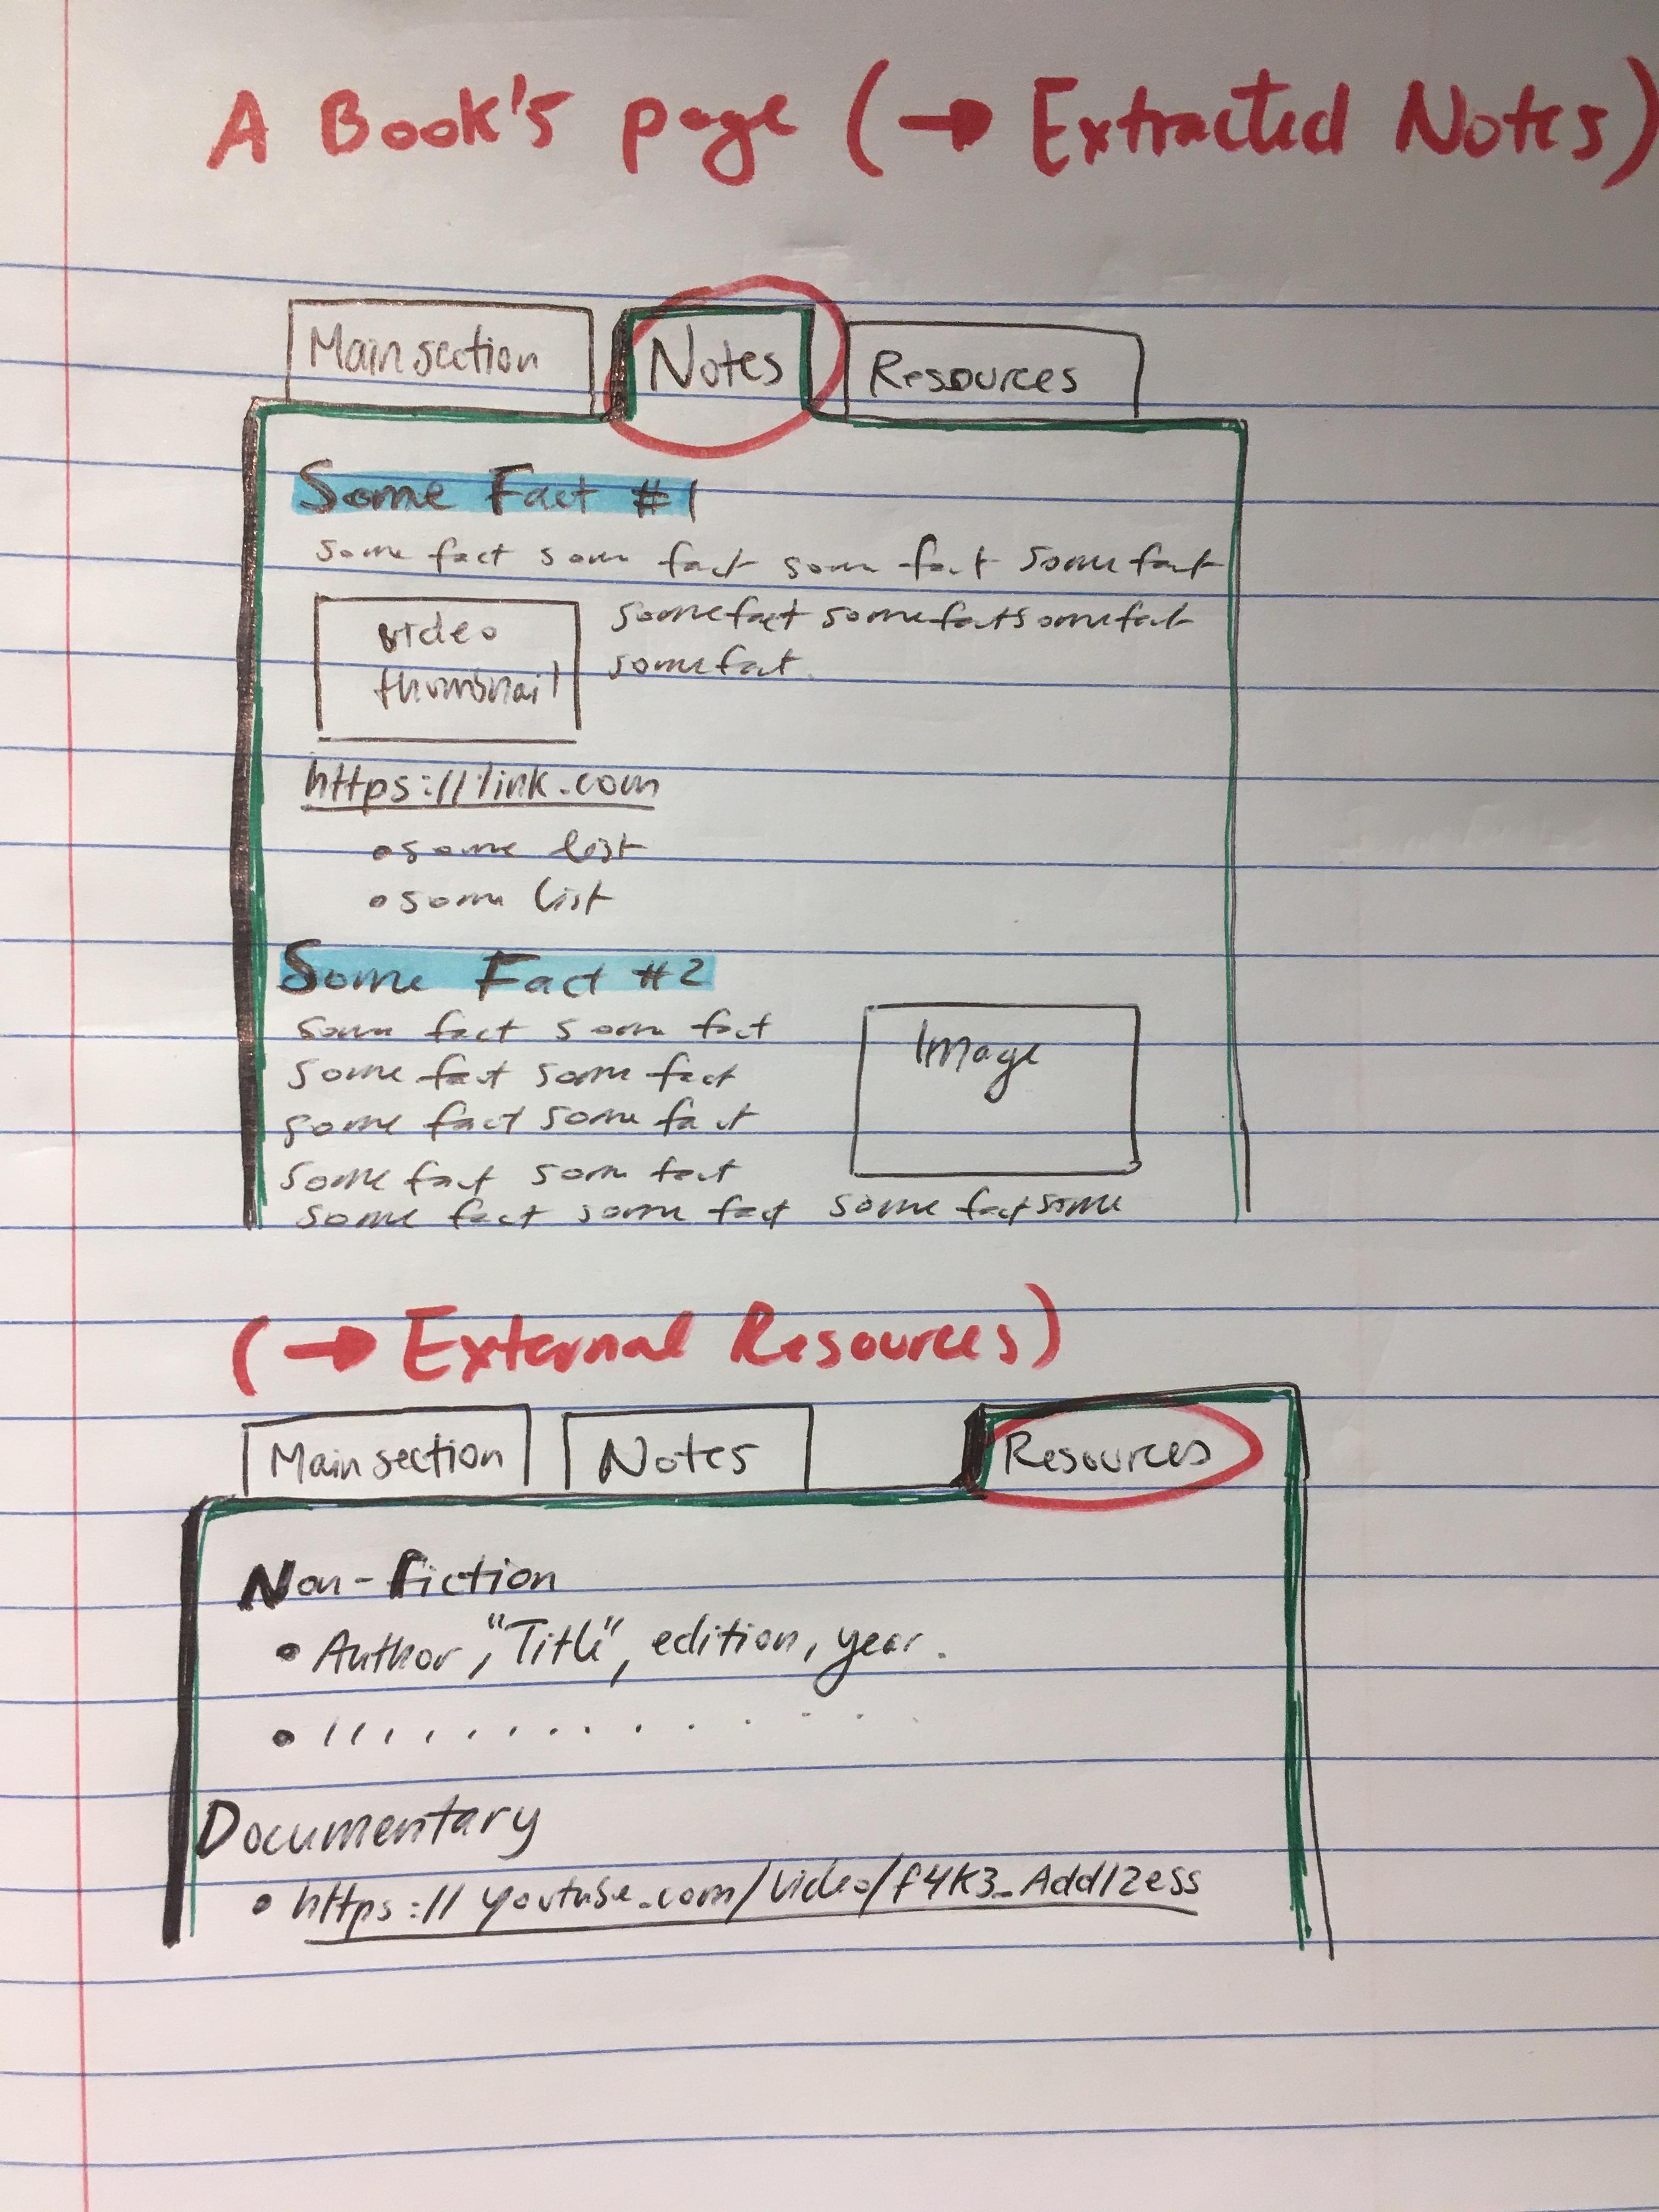 A Book's page (→ Extracted Notes)
Main section Notes Resources
Some Fact #1
some fact som fact som fact some fact
video
thumbnail
somefact somefactsomefact
somefact.
https://link.com
• some list
• som list
Some Fact #2
som fact som fact
some fact some fact
some fact some fact
some fact som fact
some fact some fact some fact some
Image
(→ External Resources)
Main section Notes Resources
Non-fiction
• Author, "Title", edition, year.
Documentary
• https://youtube.com/video/f4k3_Add12ess